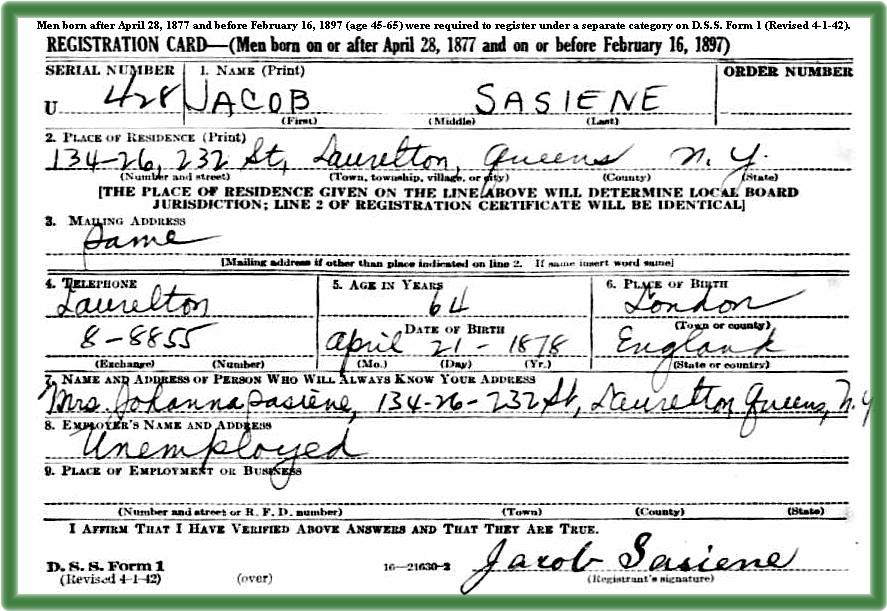 Men born after April 28, 1877 and before February 16, 1897 (age 45-65) were required to register under a separate category on D.S.S. Form 1 (Revised 4-1-42).
REGISTRATION CARD—(Men born on or after April 28, 1877 and on or before February 16, 1897)
SERIAL NUMBER 1. NAME (Print) ORDER NUMBER
U 428 JACOB SASIENE
(First) (Middle) (Last)
2. PLACE OF RESIDENCE (Print)
134-26, 232 St, Laurelton, Queens N.Y.
(Number and street) (Town, township, village, or city) (County) (State)
[THE PLACE OF RESIDENCE GIVEN ON THE LINE ABOVE WILL DETERMINE LOCAL BOARD
JURISDICTION; LINE 2 OF REGISTRATION CERTIFICATE WILL BE IDENTICAL]
3. MAILING ADDRESS
Same
[Mailing address if other than place indicated on line 2. If same insert word same]
4. TELEPHONE 5. AGE IN YEARS 6. PLACE OF BIRTH
Laurelton 64 London
DATE OF BIRTH (Town or county)
8-8855 April 21-1878 England
(Exchange) (Number) (Mo.) (Day) (Yr.) (State or country)
7. NAME AND ADDRESS OF PERSON WHO WILL ALWAYS KNOW YOUR ADDRESS
Mrs. Johanna Sasiene, 134-26-232 St, Laurelton Queens, N.Y
8. EMPLOYER'S NAME AND ADDRESS
Unemployed
9. PLACE OF EMPLOYMENT OR BUSINESS
(Number and street or R. F. D. number) (Town) (County) (State)
I AFFIRM THAT I HAVE VERIFIED ABOVE ANSWERS AND THAT THEY ARE TRUE.
D. S. S. Form 1 16—21630-2 Jacob Sasiene
(Revised 4-1-42) (over) (Registrant's signature)